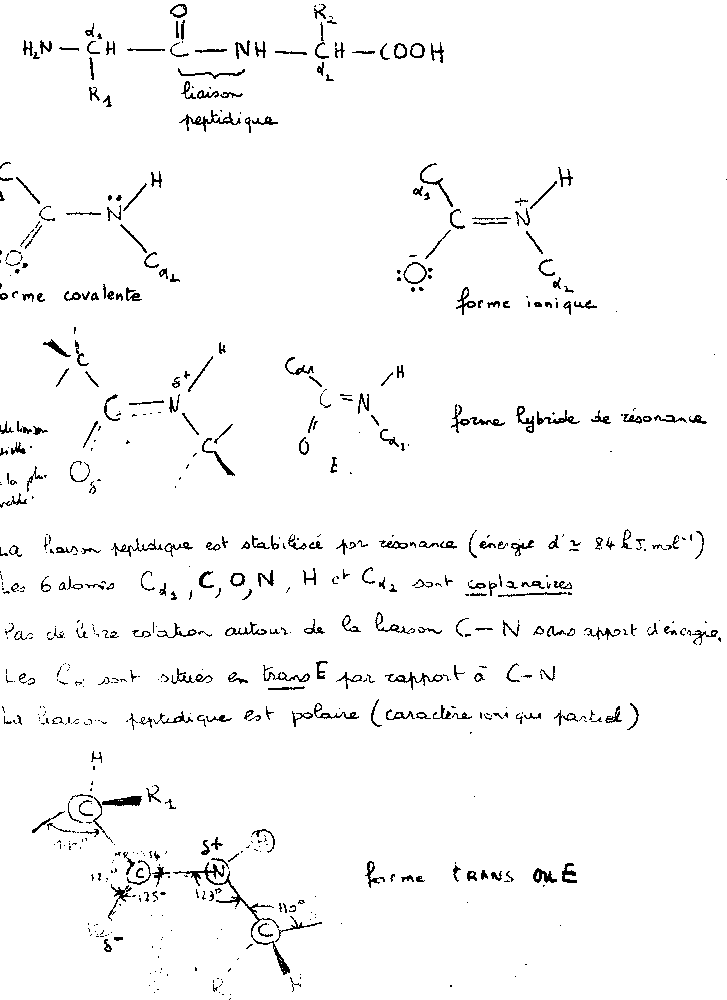 O
R₂
H₂N — CH — C — NH — CH — COOH
α₁
α₂
R₁
liaison
peptidique
C
H
C — N
O
Cα₂
forme covalente
C
α₁
H
C = N
+
O
-
Cα₂
forme ionique
C
δ+
H
C N
C
O
δ-
Cα₁
H
C = N
O
Cα₂
E
forme hybride de résonance
de liaison
la plus
La liaison peptidique est stabilisée par résonance (énergie d'≃ 84 kJ.mol⁻¹)
Les 6 atomes Cα₁, C, O, N, H et Cα₂ sont coplanaires
Pas de libre rotation autour de la liaison C—N sans apport d'énergie.
Les Cα sont situés en trans E par rapport à C-N
La liaison peptidique est polaire (caractère ionique partiel)
H
C
R₁
δ+
H
C
N
125°
123°
110°
δ-
C
R₂
H
forme TRANS ou E